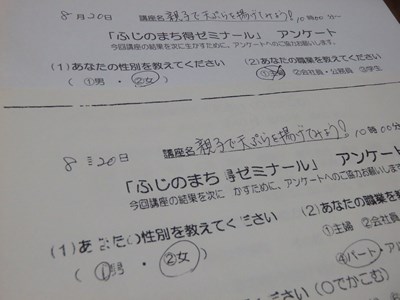 8月20日 講座名 親子で天ぷらを揚げてみよう! 10時00分~
「ふじのまち得ゼミナール」 アンケート
今回講座の結果を次に生かすために、アンケートへのご協力お願いします。
(1)あなたの性別を教えてください (2)あなたの職業を教えてください
( ①男 ・ ②女 ) ①主婦 ②会社員・公務員 ③学生
8 20日 講座名 親子で天ぷらを揚げてみよう! 10時00分
「ふじのまち 得ゼミナール」 アンケー
今回講座の結果を次に かすために、アンケートへのご協力お願いしま
(1)あなたの性別を教えてください (2)あなたの職業を
( ①男 ・ ②女 ) ①主婦 ②会社員
④パート・アル
ださい(○でかこむ)